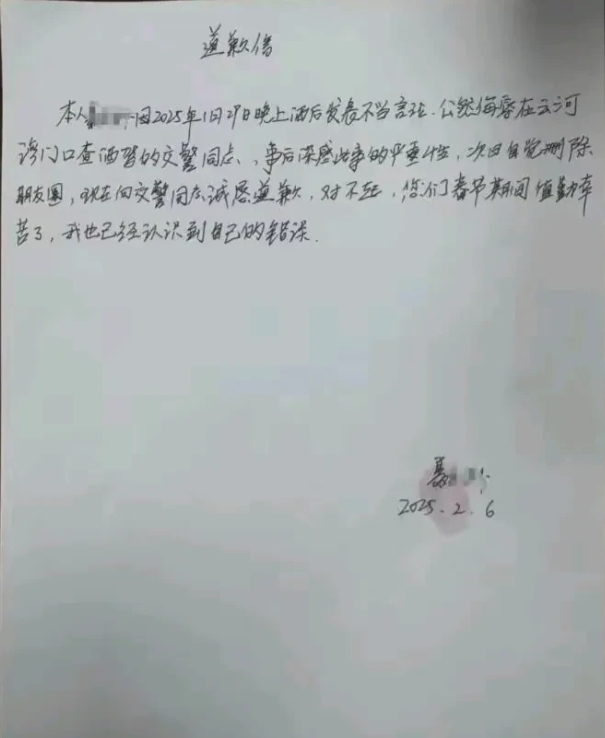 道歉信
本人 因2025年1月29日晚上酒后发表不当言论.公然侮辱在云河
湾门口查酒驾的交警同志、,事后深感此事的严重性,次日自觉删除
朋友圈,现在向交警同志诚恳道歉,对不起,您们春节期间值勤辛
苦了,我也已经认识到自己的错误.
2025.2.6